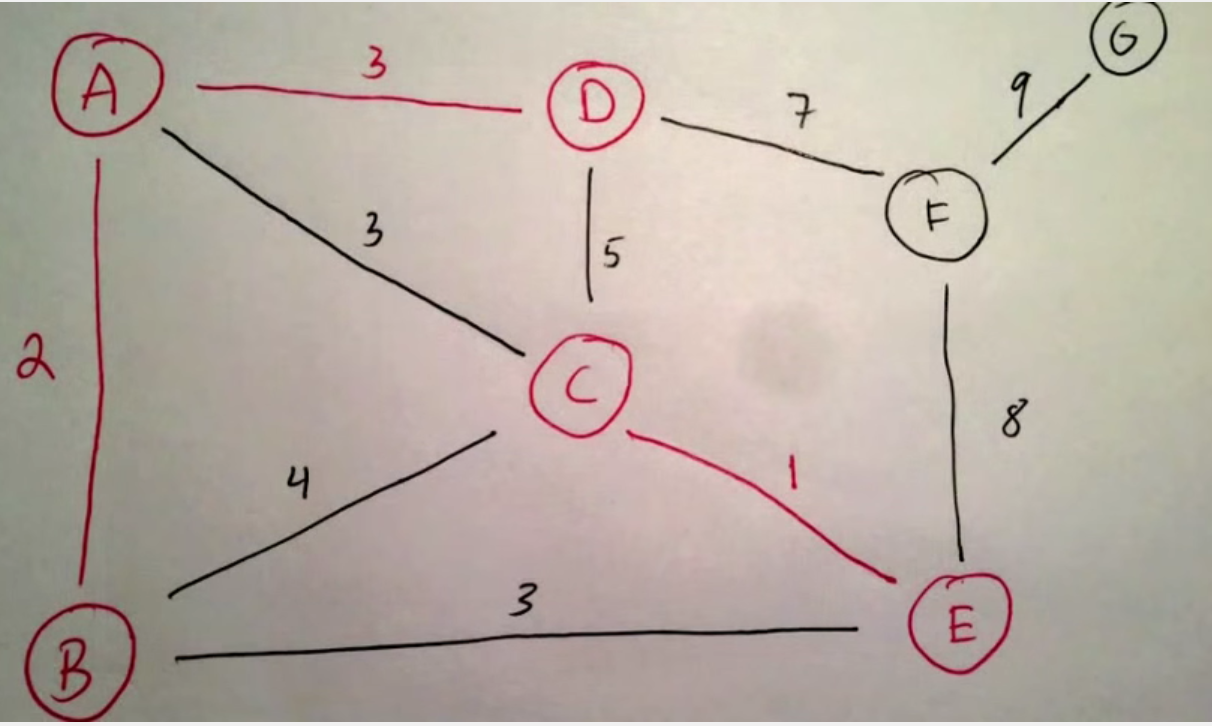 A
3
D
7
9
G
F
3
5
2
C
4
1
8
3
B
E